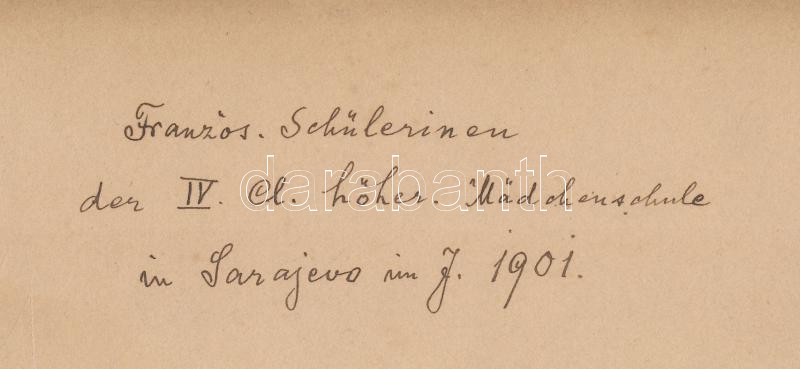 Französ. Schülerinen
der IV. Cl. höher. Mädchenschule
darabanth
in Sarajevo im J. 1901.